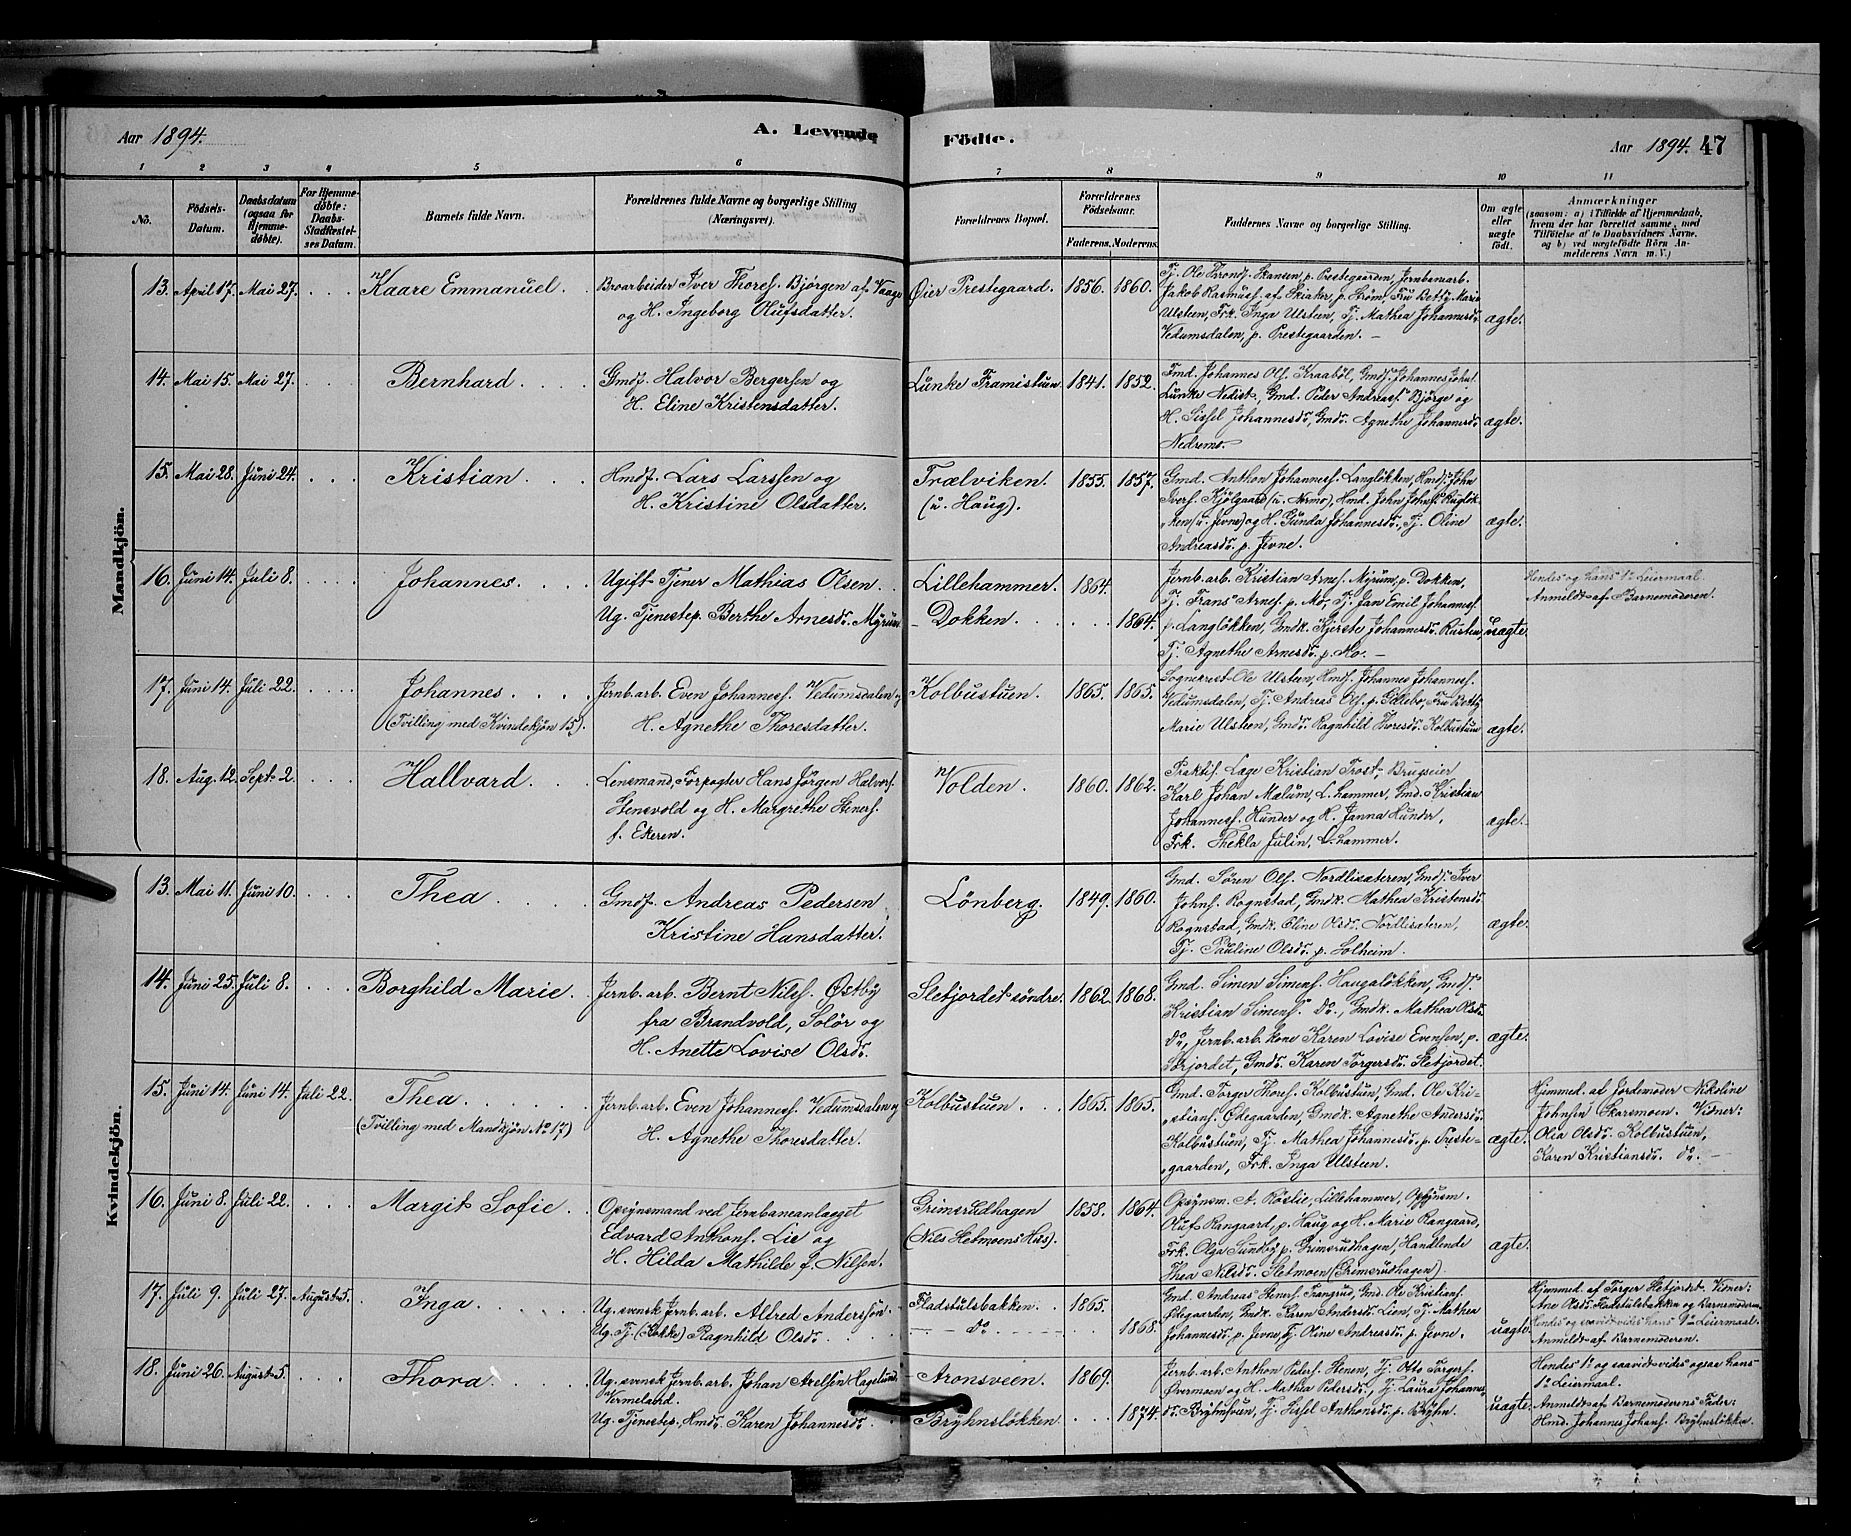 Aar 1894. A. Levende Födte. Aar 1894. 47
1 2 3 4 5 6 7 8 9 10 11
No. Födsels-Datum. Daabsdatum (ogsaa for Hjemme-døbte). For Hjemme-døbte: Daabs-Stadfæstelses Datum. Barnets fulde Navn. Forældrenes fulde Navne og borgerlige Stilling (Næringsvei). Forældrenes Bopæl. Forældrenes Födselsaar. Faderens. Moderens. Faddernes Navne og borgerlige Stilling. Om ægte eller uægte født. Anmærkninger (saasom: a) i Tilfælde af Hjemmedaab, hvem der har forrettet samme, med Tilföielse af to Daabsvidners Navne, og b) ved uægtefödte Börn Anmelderens Navn m. V.)
Mandkjön.
13. April 17. Mai 27. Kaare Emmanuel. Broarbeider Iver Thores. Bjørgen af Vaage
og H. Ingeborg Olufsdatter. Øier Prestegaard. 1856. 1860.
Tj. Ole Throndj. Skansen, p. Prestegaarden, Jernbanearb.
Jakob Rasmuss. af Skiaker, p. Strøm, Fru Betty Marie
Ulsteen, Frk. Inga Ulsteen, Tj. Mathea Johannesd.
Vedumsdalen, p. Prestegaarden. — ægte.
14. Mai 15. Mai 27. Bernhard. Gmdf. Halvor Bergersen og
H. Eline Kristensdatter. Lunke Framistuen 1841. 1852.
Fmd. Johannes Ols. Kraabøl, Gmds. Johannes Johs.
Lunke Nedist., Gmd. Peder Andreass. Bjørge og
H. Sissel Johannesd., Gmds. Agnethe Johannesd.
Nedremo. ægte.
15. Mai 28. Juni 24. Kristian. Hmdf. Lars Larssen og
H. Kristine Olsdatter. Trælviken. (u. Haug). 1855. 1857.
Gmd. Anthon Johanness. Langløkken, Hmds. John
Ivers. Kjølgaard (u. Nermo), Hmd. John Johs. Ruglök-
ken (u. Jevne) og H. Gunda Johannesd., Tj. Oline
Andreasd. p. Jevne. ægte.
16. Juni 14. Juli 8. Johannes. Ugift Tjener Mathias Olsen.
Ug. Tjenestep. Berthe Arnesd. Myrum Lillehammer. 1864.
Dokken. 1864.
Jernb. arb. Kristian Arnes. Myrum, p. Dokken,
Tj. Frans Arnes. p. Mo, Tj. Jan Emil Johanness.
p. Langløkken, Gmdk. Kjerste Johannesd. Rusten,
Tj. Agnethe Arnesd. p. Mo. — uægte.
Hendes og hans 1ste Leiermaal.
Anmeldt af Barnemoderen.
17. Juni 14. Juli 22. Johannes. (Tvilling med Kvindekjön 15). Jernb. arb. Even Johanness. Vedumsdalen og
H. Agnethe Thoresdatter. Kolbustuen. 1865. 1865.
Sogneprest Ole Ulsteen, Hmds. Johannes Johanness.
Vedumsdalen, Tj. Andreas Ols. p. Gillebo, Fru Betty
Marie Ulsteen, Gmds. Ragnhild Thoresd. Kolbustuen ægte.
18. Aug. 12. Sept. 2. Hallvard. Lensmand, Forpagter Hans Jörgen Halvors.
Stensvold og H. Margrethe Steners.
f. Ekeren. Volden. 1860. 1862.
Praktis. Læge Kristian Trost, Brugseier
Karl Johan Mælum, L. hammer, Gmd. Kristian
Johanness. Hunder og H. Janna Hunder,
Frk. Thekla Julin, L. hammer. ægte.
Kvindekjön.
13. Mai 11. Juni 10. Thea. Gmdf. Andreas Pedersen
Kristine Hansdatter. Lönberg. 1849. 1860.
Gmd. Søren Ols. Nordlisæteren, Gmds. Iver
Johns. Rognstad, Gmdk. Mathea Kristensd.
Rognstad, Gmdk. Eline Olsd. Nordlisæteren,
Tj. Pauline Olsd. p. Solheim. ægte.
14. Juni 25. Juli 8. Borghild Marie. Jernb. arb. Bernt Nils. Østby
fra Brandvold, Solør og
H. Anette Lovise Olsd. Sletjordet søndre. 1862. 1868.
Gmd. Simen Simens. Haugaløkken, Gmds.
Kristian Simens. Do., Gmdk. Mathea Olsd.
Do, Jernb. arb. kone Karen Lovise Evensen, p.
Sorjordet, Gmds. Karen Torgersd. Sletjordet. ægte.
15. Juni 14. Juni 14. Juli 22. Thea. (Tvilling med Mandkjön No 17) Jernb. arb. Even Johanness. Vedumsdalen og
H. Agnethe Thoresdatter. Kolbustuen. 1865. 1865.
Gmd. Torger Thores. Kolbustuen, Gmd. Ole Kri-
stians. Ødegaarden, Gmdk. Agnethe Andersd.
Kolbustuen, Tj. Mathea Johannesd., p. Preste-
gaarden, Frk. Inga Ulsteen. ægte.
Hjemmed. af Jordemoder Nikoline
Johnsen Skaremoen. Vidner:
Olia Olsd. Kolbustuen,
Karen Kristiansd. do. —
16. Juni 8. Juli 22. Margit Sofie. Opsynsmand ved Jernbaneanlægget
Edvard Anthons. Lie og
H. Hilda Mathilde f. Nilsen. Grimsrudhagen (Nils Sletmoens Hus). 1858. 1864.
Opsynsm. A. Röstie, Lillehammer, Opsynsm.
Oluf Rangaard, p. Haug og H. Marie Rangaard,
Frk. Olga Sundby p. Grimsrudhagen, Handlende
Thea Nilsd. Sletmoen (Grimsrudhagen). ægte.
17. Juli 9. Juli 27. August 5. Inga. Ug. svensk Jernb. arb. Alfred Andersson.
Ug. Tj. (Kokke) Ragnhild Olsd. Fladstulsbakken. 1865.
do. 1868.
Gmd. Andreas Steners. Trangrud, Gmd. Ole Kristians.
Ødegaarden, Gmdk. Karen Andersd. Lien, Tj. Mathea
Johannesd. p. Jevne, Tj. Oline Andreasd. p. Jevne. uægte.
Hjemmed. af Torger Sletjordet. Vidner:
Ane Olsd. Fladstulsbakken og Barnemoderen.
Hendes og saavidt vides hans 1ste Leiermaal.
Anmeldt af Barnemoderen.
18. Juni 26. August 5. Thora. Ug. svensk Jernb. arb. Johan Axelsen Hagelund
Vermeland.
Ug. Tjenestep., Hmds. Karen Johannesd. Aronsveen. 1869.
Bryhnsløkken. 1874.
Jernb. arb. Anthon Peders. Stenen, Tj. Otto Torgers.
Øvermoen og H. Mathea Pedersd., Tj. Laura Johannes-
d. Bryhnsveen, Tj. Sissel Anthonsd. p. Bryhn. uægte.
Hendes 1ste og saavidt vides ogsaa hans
1ste Leiermaal.
Anmeldt af Barnemoderens Fader:
Hmd. Johannes Johans. Bryhnsløkken.